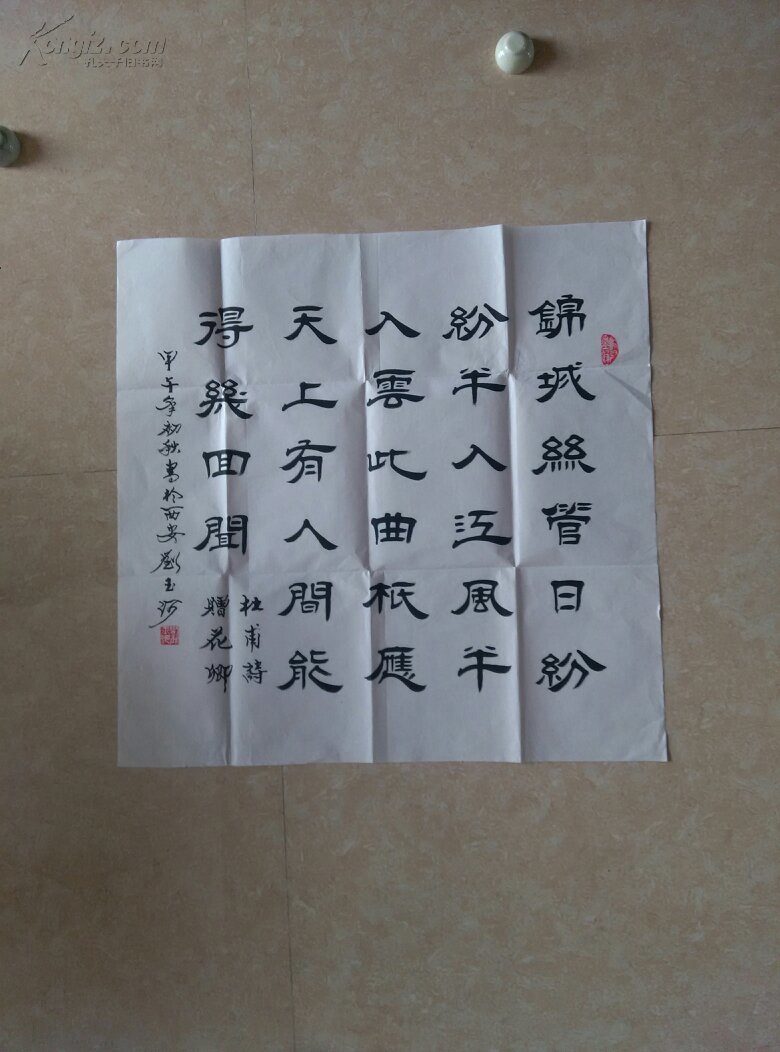 錦城絲管日紛
紛半入江風半
入雲此曲秖應
天上有人間能
得幾回聞
杜甫詩
贈花卿
甲午年初秋書於西安劉玉
Kongfz.com
孔夫子旧书网